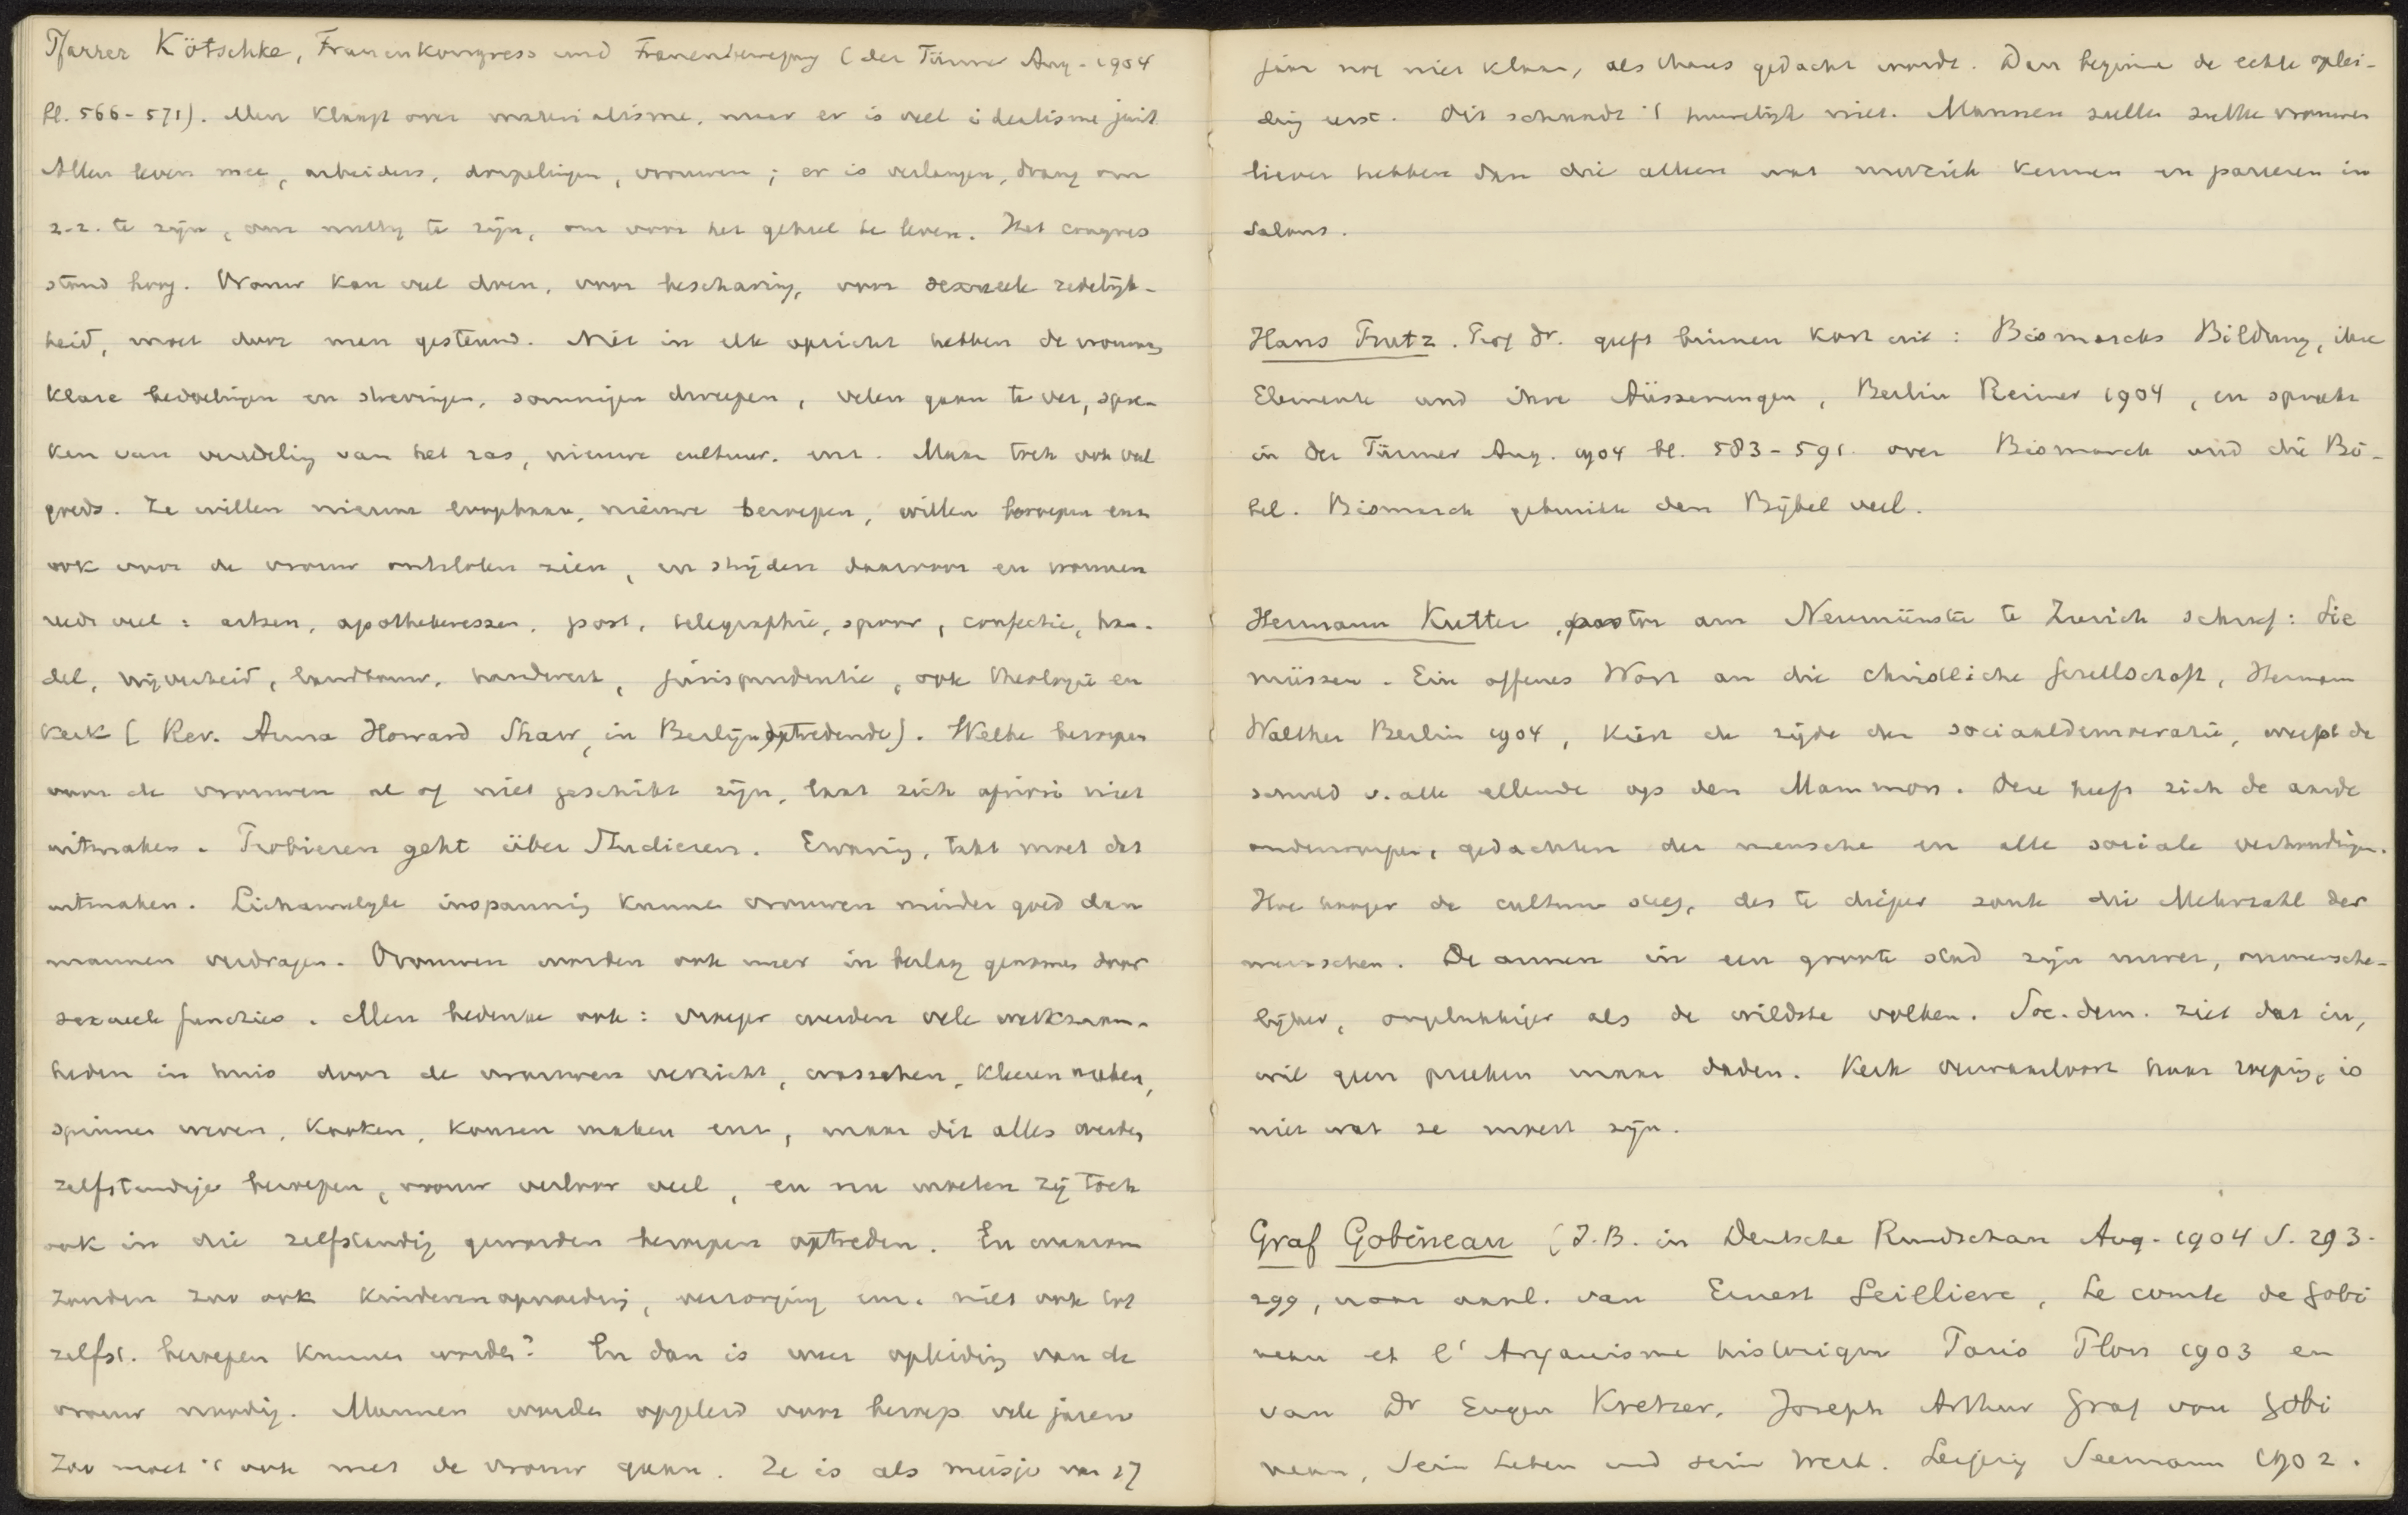 Pfarrer Kötschke, Frauenkongress und Frauenbewegung (der Türmer Aug. 1904
bl. 566-571). Men klaagt over materialisme, maar er is veel idealisme juist
Allen leven mee, arbeiders, vrouwen; er is verlangen, drang om
z-z. te zijn, om nuttig te zijn, om voor het geheel te leven. Het congres
stond hoog. Vrouw kan veel doen, voor beschaving, voor sexueele zedelijk-
heid, moet door man gesteund. Niet in elk opzicht hebben de vrouwen
klare bedoelingen en strevingen, sommigen dweepen, velen gaan te ver, spre-
ken van veredeling van het ras, nieuwe cultuur. enz. Maar toch ook veel
goeds. Ze willen nieuwe loopbaan, nieuwe beroepen, willen beroepen enz
ook voor de vrouw ontsloten zien, en strijden daarvoor en wonnen
reeds veel: artsen, apothekeressen, post, telegraphie, spoor, confectie, han-
del, nijverheid, landbouw, handwerk, jurisprudentie, ook theologie en
kerk (Rev. Anna Howard Shaw, in Berlijn optredende). Welke beroepen
voor de vrouwen al of niet geschikt zijn, laat zich apriori niet
uitmaken. Probieren geht über Studieren. Ervaring, takt moet dat
uitmaken. Lichamelyke inspanning kunnen vrouwen minder goed dan
mannen verdragen. Vrouwen worden ook meer in beslag genomen door
sexueele functies. Men bedenke ook: vroeger werden vele werkzaam-
heden in huis door de vrouwen verricht, wasschen, kleeren maken,
spinnen weven, koken, kousen maken enz, maar dit alles werden
zelfstandige beroepen, vrouw verloor veel, en nu moeten zij toch
ook in die zelfstandig geworden beroepen optreden. En waarom
zouden zoo ook kinderenopvoeding, verzorging enz. niet ook tot
zelfst. beroepen kunnen worden? En dan is meer opleiding van de
vrouw noodig. Mannen worden opgeleid voor beroep vele jaren
Zoo moet 't ook met de vrouw gaan. Ze is als meisje van 17
jaar nog niet klaar, als thans gedacht wordt. Dan begint de echte oplei-
ding eerst. Dit schaadt 't huwelijk niet. Mannen zullen zulke vrouwen
liever hebben dan die alleen wat muziek kennen en pareeren in
salons.
Hans Prutz. Prof dr. geeft binnen kort uit: Bismarcks Bildung, ihre
Elemente und ihre Äusserungen, Berlin Reimer 1904, en spreekt
in der Türmer Aug. 1904 bl. 583-591. over Bismarck und die Bi-
bel. Bismarck gebruikte den Bijbel veel.
Hermann Kutter, pastor am Neumünster te Zurich schreef: Sie
müssen. Ein offenes Wort an die christliche Gesellschaft, Hermann
Walther Berlin 1904, kiest de zijde der sociaaldemocratie, werpt de
schuld v. alle ellende op den Mammon. Deze heeft zich de aarde
onderworpen, gedachten der menschen en alle sociale verhoudingen.
Hoe hooger de cultuur steeg, des te dieper zonk die Mehrzahl der
menschen. De armen in een groote stad zijn rower, onmensche-
lijker, ongelukkiger als de wildste volken. Soc.-dem. ziet dat in,
wil geen preeken maar daden. Kerk verwaarloost haar roeping, is
niet wat ze moest zijn.
Graf Gobineau (J.B. in Deutsche Rundschau Aug. 1904 S. 293-
299, naar aanl. van Ernest Seilliere, Le comte de Gobi
neau et l'Aryanisme historique Paris Plon 1903 en
van Dr Eugen Kretzer, Joseph Arthur Graf von Gobi
neau, Sein Leben und sein Werk. Leipzig Seemann 1902.